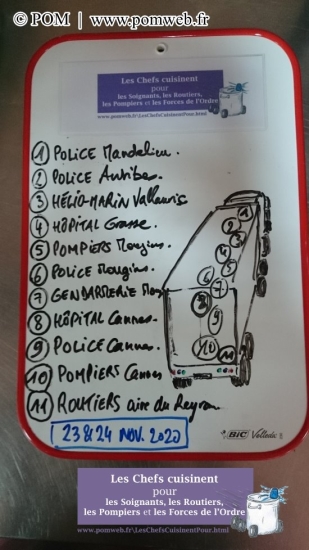 © POM | www.pomweb.fr
Les Chefs cuisinent
pour
les Soignants, les Routiers,
les Pompiers et les Forces de l'Ordre
www.pomweb.fr\LesChefsCuisinentPour.html
1 POLICE Mandelieu.
2 POLICE Antibes.
3 HÉLIO-MARIN Vallauris
4 HÔPITAL Grasse.
5 POMPIERS Mougins.
6 POLICE Mougins.
7 GENDARMERIE
8 HÔPITAL Cannes.
9 POLICE Cannes.
10 POMPIERS Cannes
11 ROUTIERS aire du
1
2
3
4
5
6 7
8 9
10 11
23 & 24 NOV. 2020
BIC Velleda
Les Chefs cuisinent
pour
les Soignants, les Routiers,
les Pompiers et les Forces de l'Ordre
www.pomweb.fr\LesChefsCuisinentPour.html